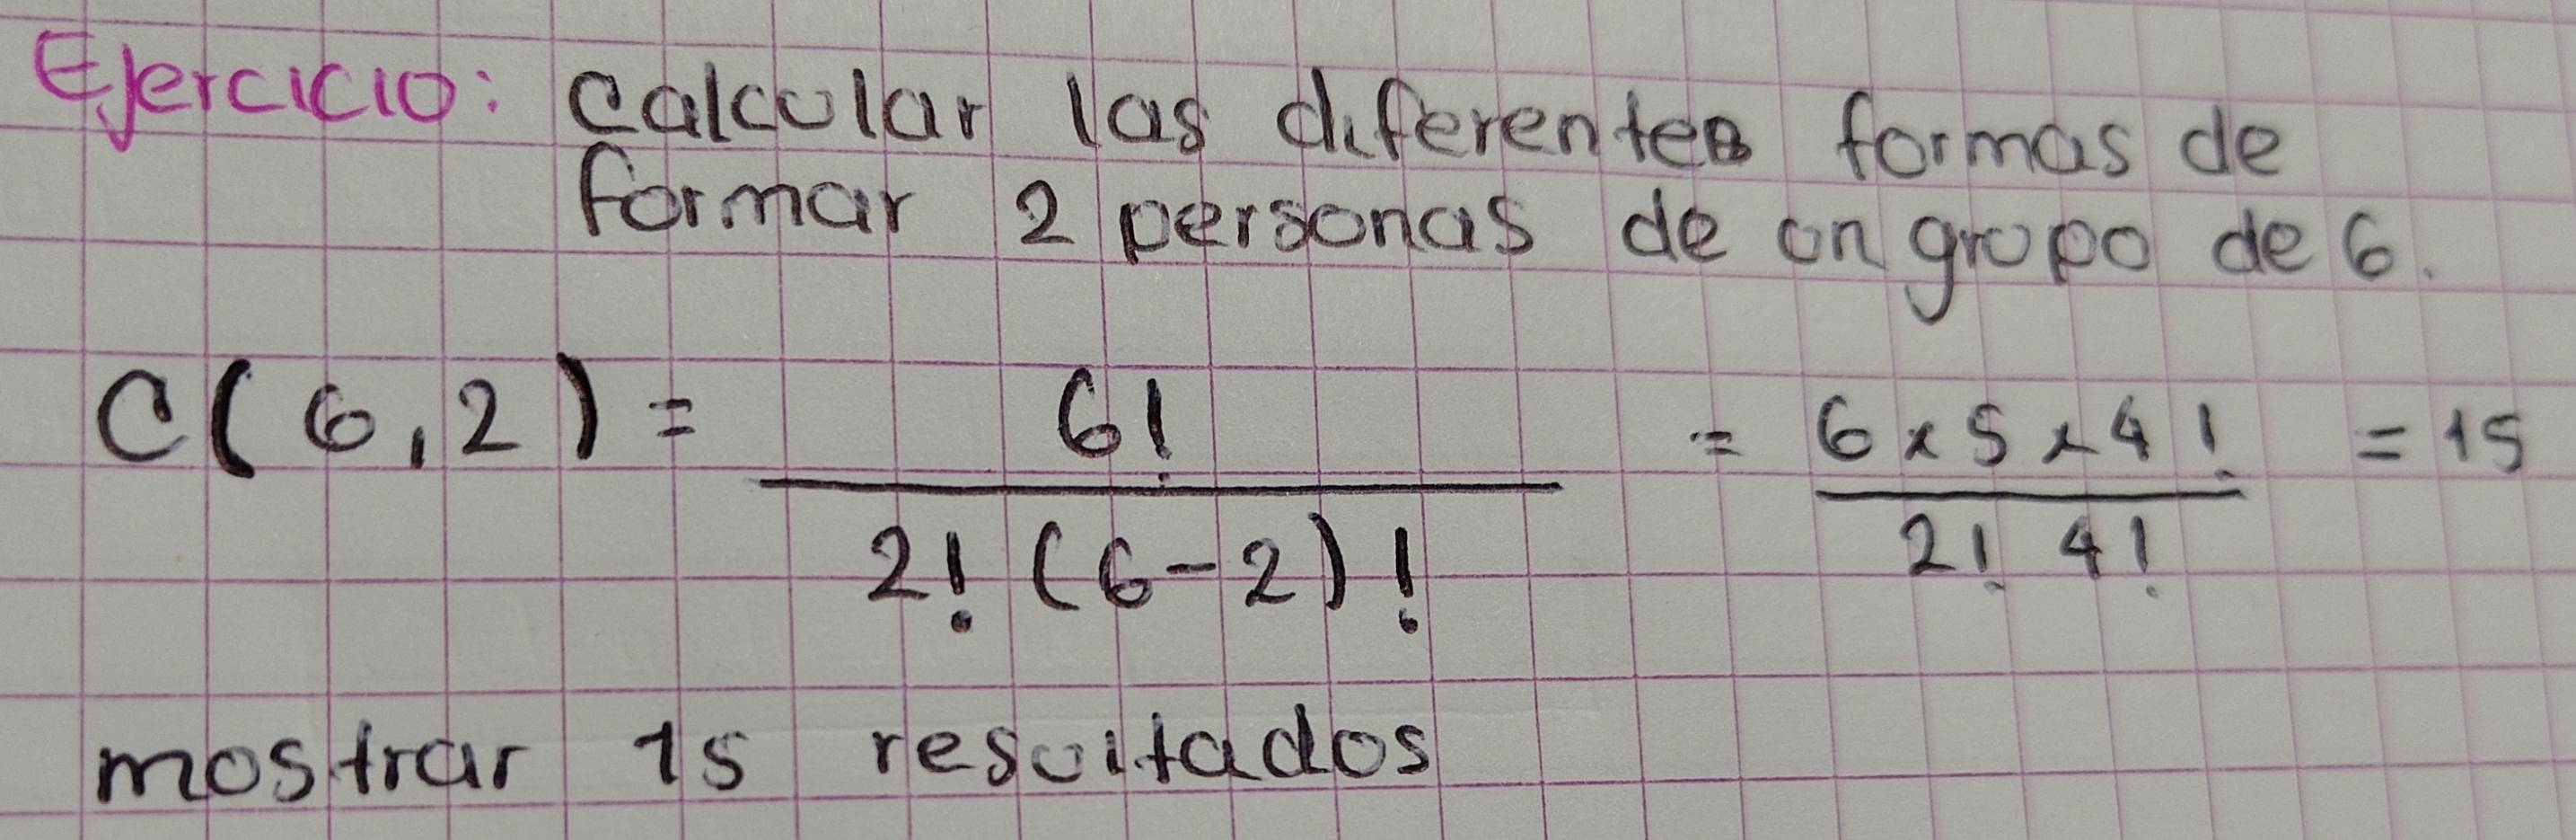 Ejercicio: Calcular las diferentes formas de
formar 2 personas de un grupo de 6.
C(6,2) = 6! / 2! (6-2)! = 6 x 5 x 4! / 2! 4! = 15
mostrar 15 resultados